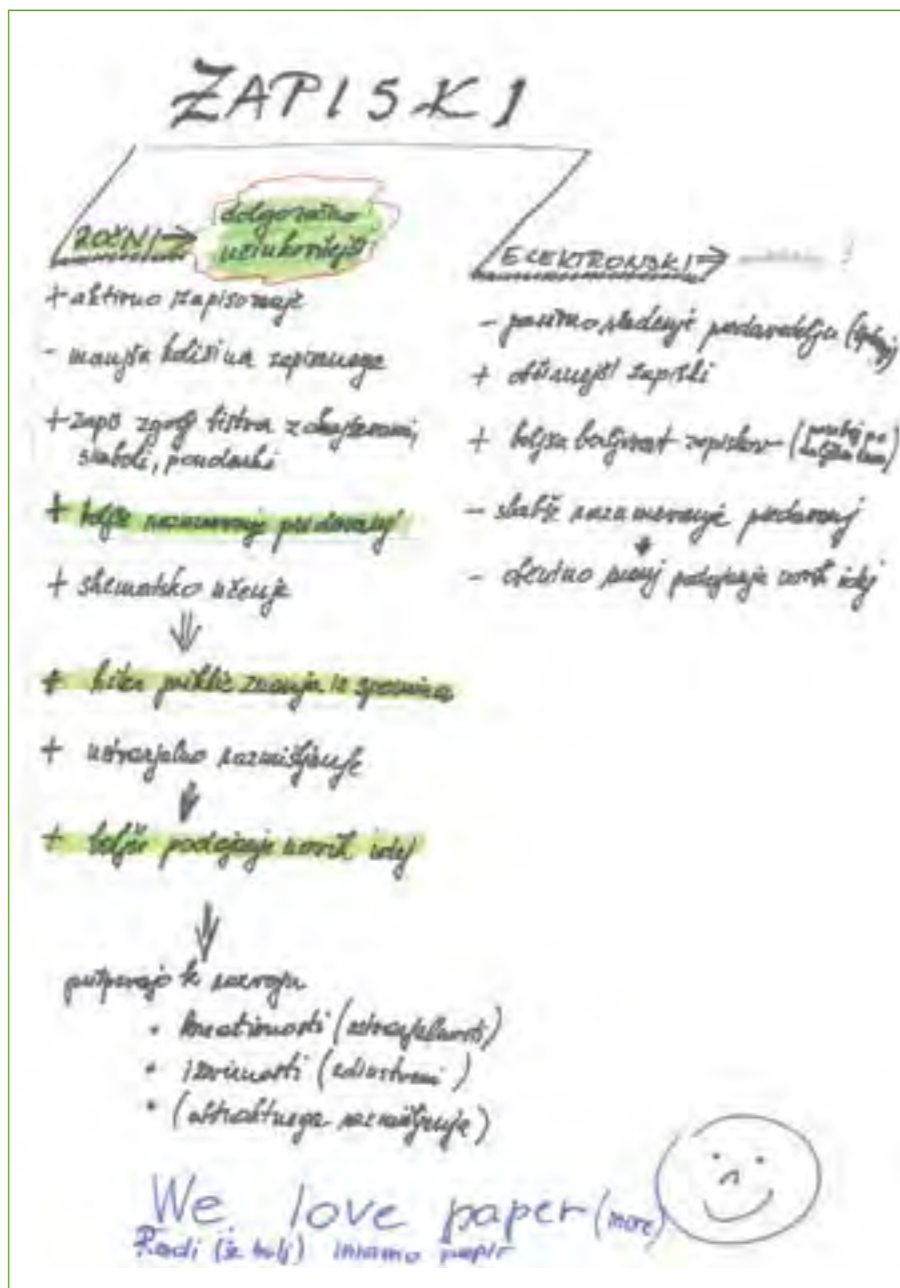 ZAPISKI
ROČNI →
dolgoročno
učinkovitejši
+ aktivno zapisovanje
- manjša količina zapisanega
+ zapis zgolj bistva z okrajšavami,
simboli, poudarki
+ boljše razumevanje predavanj
+ shematsko učenje
+ hiter priklic znanja iz spomina
+ ustvarjalno razmišljanje
+ boljše podajanje novih idej
pripevajo k razvoju
• kreativnosti (ustvarjalnosti)
• izvirnosti (edinstveni)
• (abstraktnega razmišljanja)
ELEKTRONSKI →
- pasivno sledenje predavatelju
+ obširnejši zapiski
+ boljša berljivost zapiskov
- slabše razumevanje predavanj
- obenem manj podajanja novih idej
We love paper (more)
Radi (še bolj) imamo papir